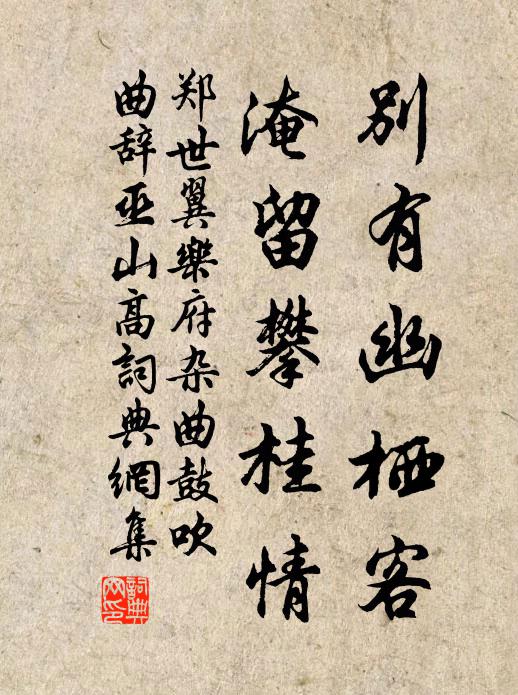 别有幽栖客
淹留攀桂情
郑世翼樂府杂曲鼓吹
曲辞巫山高詞典網集
詞典网印